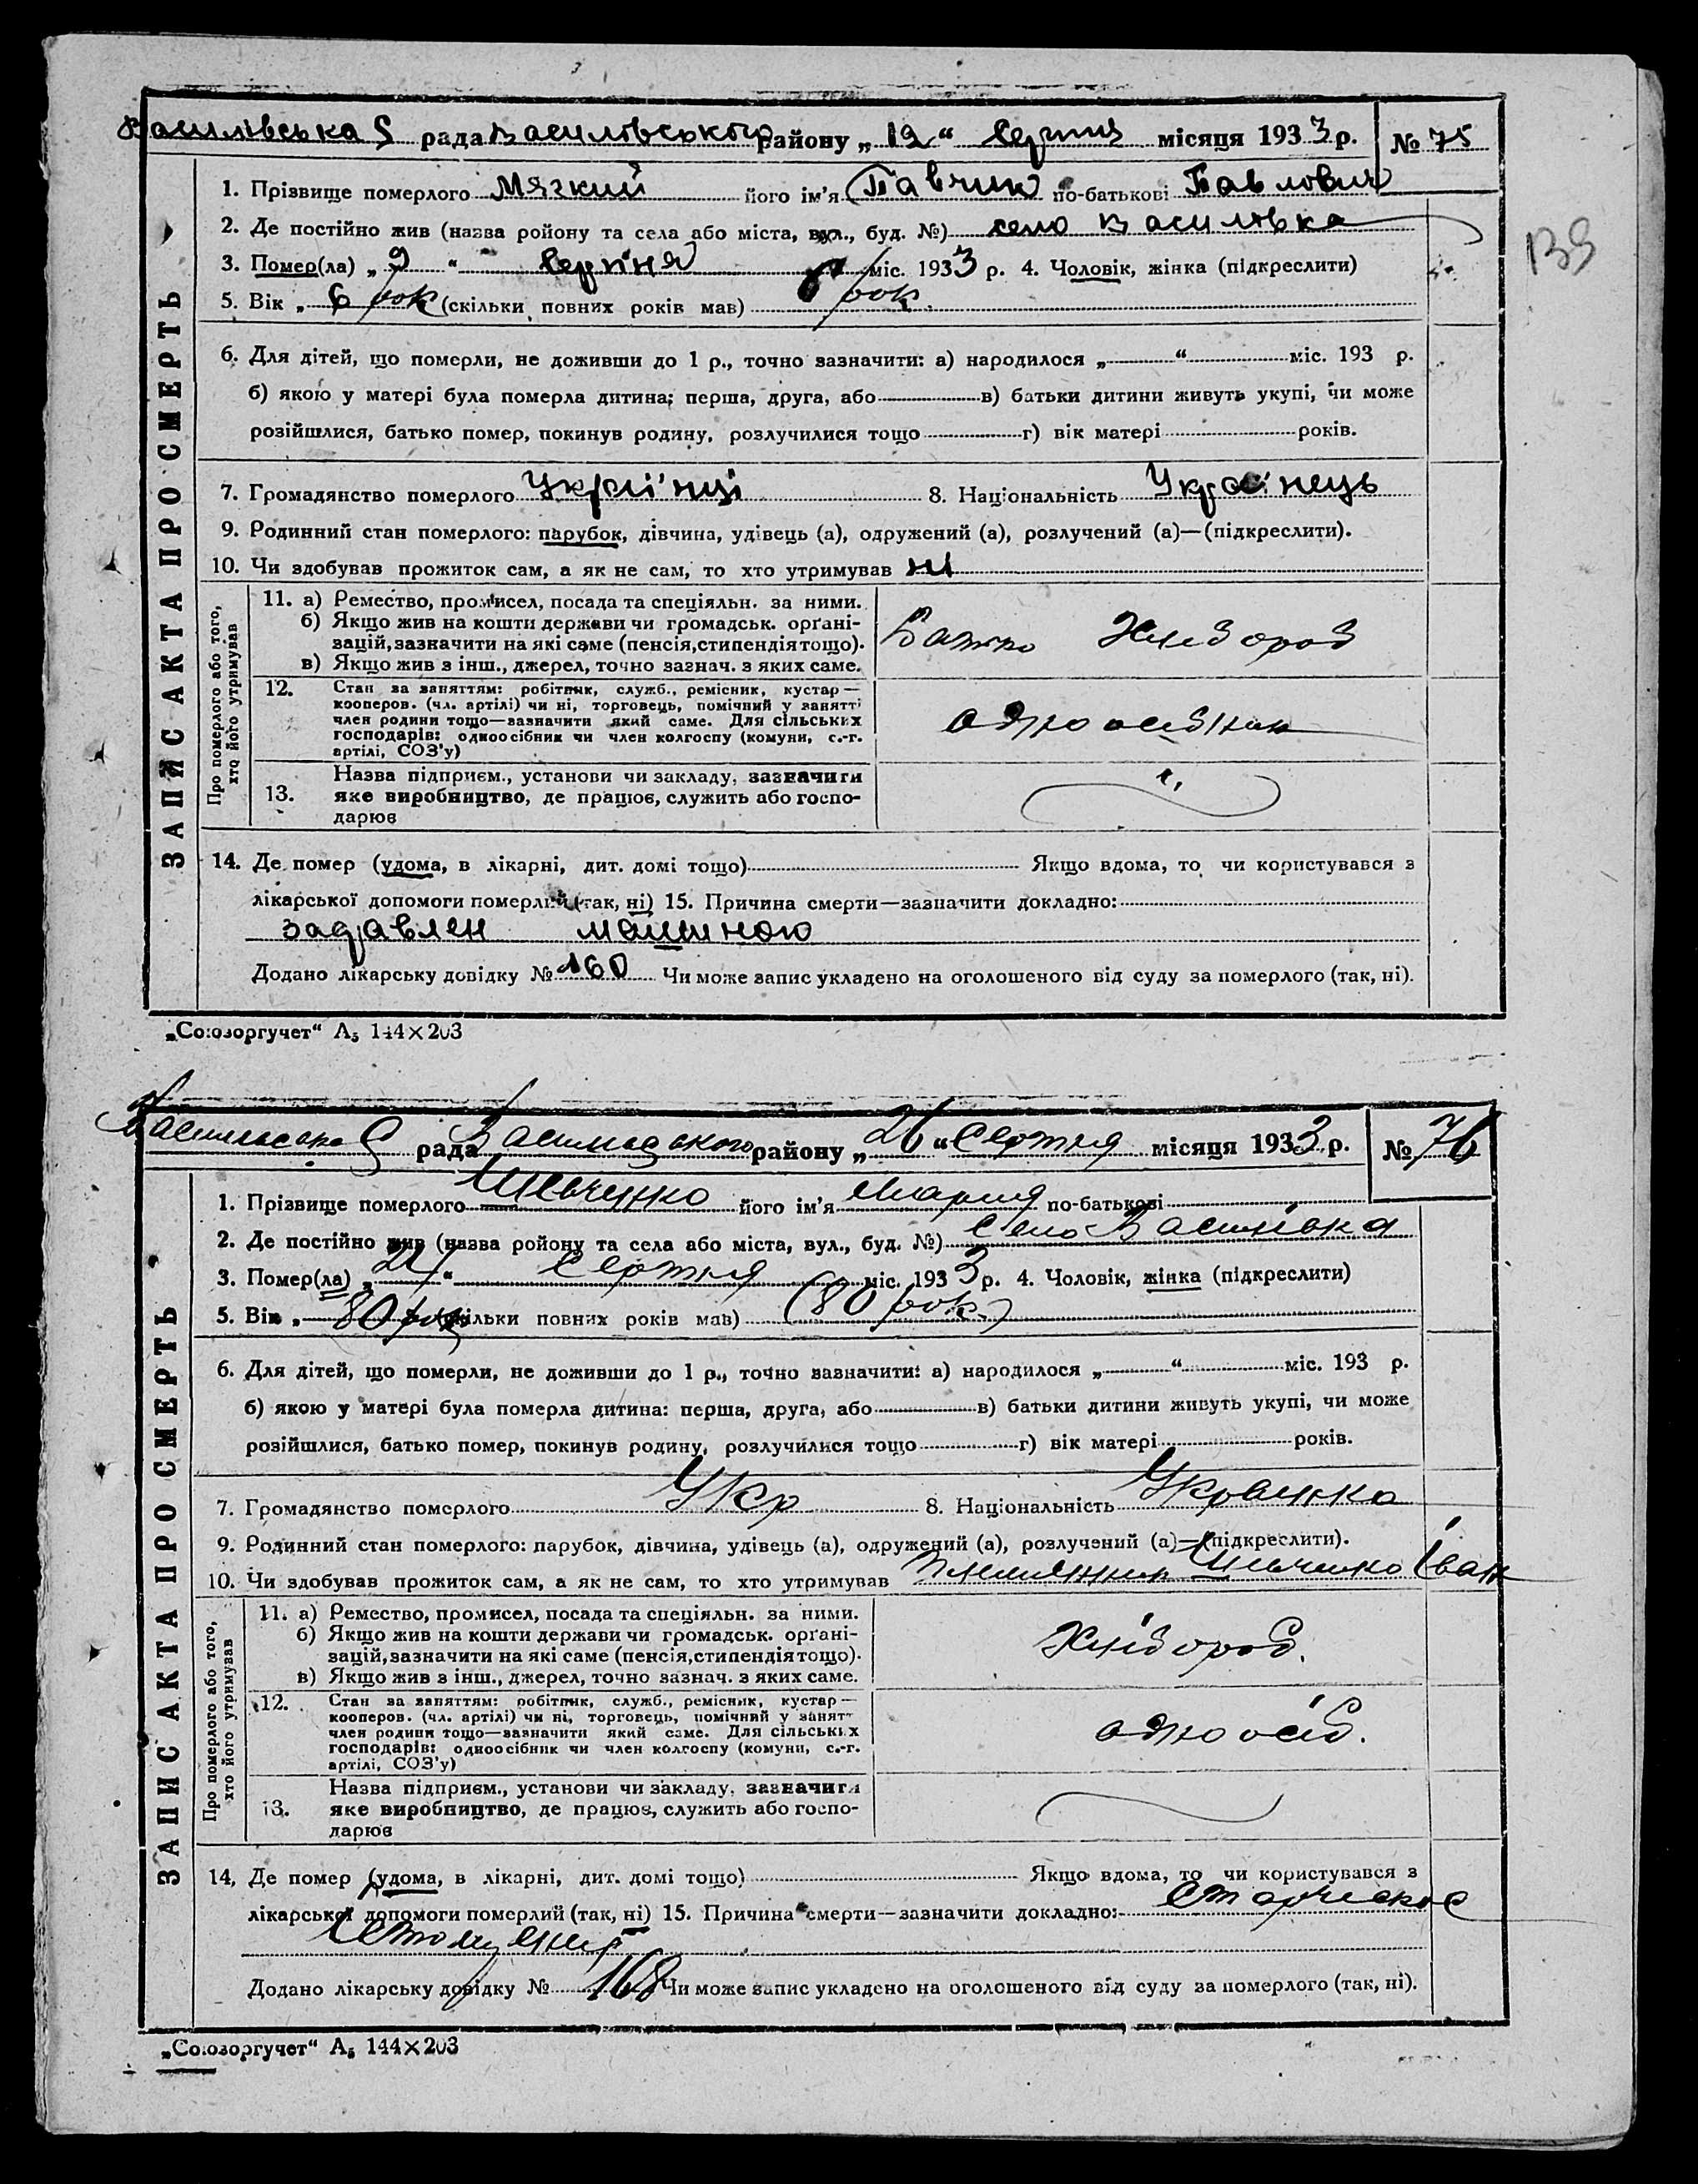 Василівська S рада Василовського району „ 12 “ Серпня місяця 1933 р. № 75
1. Прізвище померлого Мягкий його ім'я Павчик по-батькові Павлович
2. Де постійно жив (назва ройону та села або міста, вул., буд. №) село Василівка
3. Помер(ла) „ 9 “ Серпіня міс. 1933 р. 4. Чоловік, жінка (підкреслити)
5. Вік „ 6 рок (скільки повних років мав) рок
139
6. Для дітей, що померли, не доживши до 1 р., точно зазначити: а) народилося „ “ міс. 193 р.
б) якою у матері була померла дитина; перша, друга, або в) батьки дитини живуть укупі, чи може
розійшлися, батько помер, покинув родину, розлучилися тощо г) вік матері років.
7. Громадянство померлого 8. Національність Украінець
9. Родинний стан померлого: парубок, дівчина, удівець (а), одружений (а), розлучений (а)—(підкреслити).
10. Чи здобував прожиток сам, а як не сам, то хто утримував ні
Про померлого або того,
хто його утримував
11. а) Ремество, промисел, посада та спеціяльн. за ними.
б) Якщо жив на кошти держави чи громадськ. орґані-
зацій, зазначити на які саме (пенсія, стипендія тощо).
в) Якщо жив з інш., джерел, точно зазнач. з яких саме.
Батько Хлібороб
12. Стан за заняттям: робітник, служб., ремісник, кустар —
кооперов. (чл. артілі) чи ні, торговець, помічний у занятті
член родини тощо—зазначити який саме. Для сільських
господарів: одноосібник чи член колгоспу (комуни, с.-г.
артілі, СОЗ'у)
одноосібник
13. Назва підприєм., установи чи закладу, зазначити
яке виробництво, де працює, служить або госпо-
дарює
14. Де помер (удома, в лікарні, дит. домі тощо) Якщо вдома, то чи користувався з
лікарської допомоги померлий (так, ні) 15. Причина смерти—зазначити докладно:
задавлен машиною
Додано лікарську довідку № 160 Чи може запис укладено на оголошеного від суду за померлого (так, ні).
ЗАПИС АКТА ПРО СМЕРТЬ
„Союзоргучет“ А5 144×203
рада району „ 26 “ Серпня місяця 1933 р. № 76
1. Прізвище померлого Шевченко його ім'я Мария по-батькові
2. Де постійно жив (назва ройону та села або міста, вул., буд. №) Село Василівка
3. Помер(ла) „ 24 “ Серпня міс. 1933 р. 4. Чоловік, жінка (підкреслити)
5. Вік „ 80 рок (скільки повних років мав) (80 рок.)
6. Для дітей, що померли, не доживши до 1 р., точно зазначити: а) народилося „ “ міс. 193 р.
б) якою у матері була померла дитина: перша, друга, або в) батьки дитини живуть укупі, чи може
розійшлися, батько помер, покинув родину, розлучилися тощо г) вік матері років.
7. Громадянство померлого Укр 8. Національність Украинка
9. Родинний стан померлого: парубок, дівчина, удівець (а), одружений (а), розлучений (а)—(підкреслити).
10. Чи здобував прожиток сам, а як не сам, то хто утримував Племянник Шевченко Іван
Про померлого або того,
хто його утримував
11. а) Ремество, промисел, посада та спеціяльн. за ними.
б) Якщо жив на кошти держави чи громадськ. орґані-
зацій, зазначити на які саме (пенсія, стипендія тощо).
в) Якщо жив з інш., джерел, точно зазнач. з яких саме.
Хлібороб.
12. Стан за заняттям: робітник, служб., ремісник, кустар —
кооперов. (чл. артілі) чи ні, торговець, помічний у занятт
член родини тощо—зазначити який саме. Для сільських
господарів: одноосібник чи член колгоспу (комуни, с.-г.
артілі, СОЗ'у)
одноосіб.
13. Назва підприєм., установи чи закладу, зазначити
яке виробництво, де працює, служить або госпо-
дарює
14, Де помер (удома, в лікарні, дит. домі тощо) Якщо вдома, то чи користувався з
лікарської допомоги померлий (так, ні) 15. Причина смерти—зазначити докладно: Старческое
Додано лікарську довідку № 168 Чи може запис укладено на оголошеного від суду за померлого (так, ні).
ЗАПИС АКТА ПРО СМЕРТЬ
„Союзоргучет“ А5 144×203